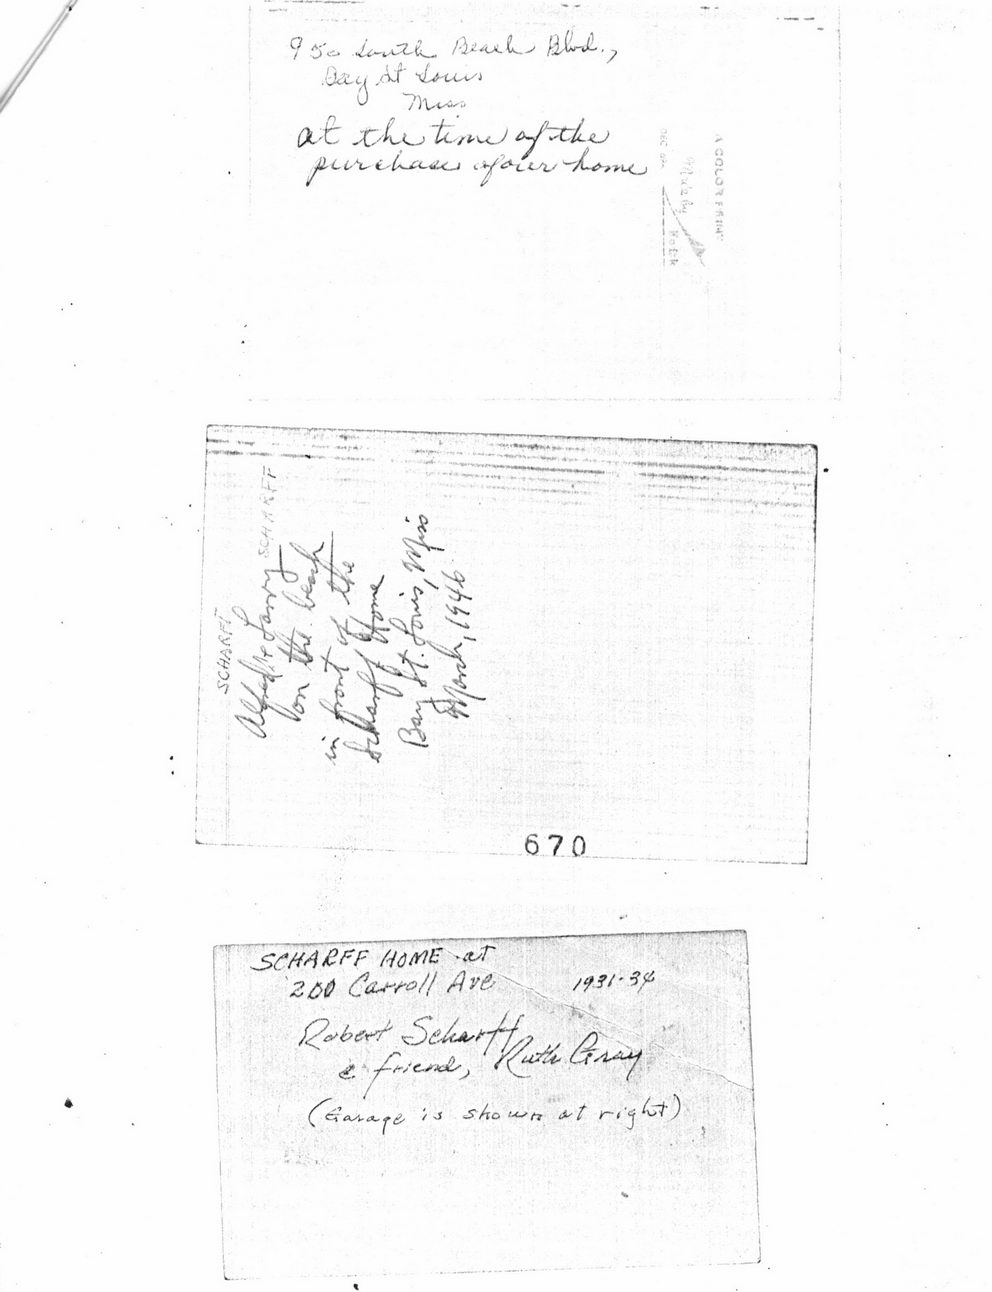 950 South Beach Blvd.,
Bay St Louis
Miss
at the time of the
purchase of our home
A COLOR PRINT
SCHARFF
Alfred & Larry SCHARFF
on the beach
in front of the
Scharff Home
Bay St. Louis, Miss
March, 1946
670
SCHARFF HOME at
200 Carroll Ave 1931-34
Robert Scharff
& friend, Ruth Gray
(Garage is shown at right)